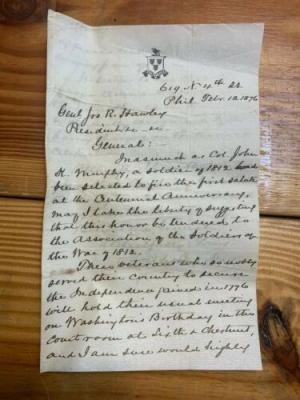 619 N 4th St
Phil Febr. 12 1876
Genl Jos R. Hawley
President &c &c
General:
Inasmuch as Col John
H. Murphy, a Soldier of 1812 has
been selected to fire the first salute
at the Centennial Anniversary,
may I take the liberty of suggesting
that this honor be tendered to
the Association of the Soldiers of
the War of 1812.
These veterans who so nobly
served their Country to secure
the Independence gained in 1776
will hold their usual meeting
on Washington's Birthday in the
Court room at Sixth & Chestnut,
and I am sure would highly